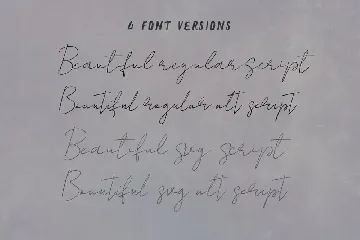 6 FONT VERSIONS
Beautiful regular script
Beautiful regular alt script
Beautiful svg script
Beautiful svg alt script